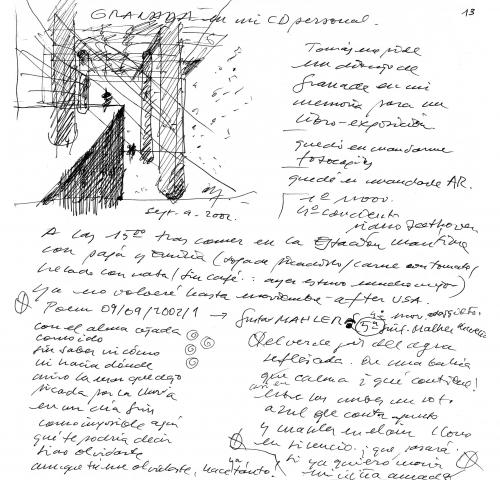 GRANADA en mi CD personal.
13
Tomás me pide
un dibujo de
Granada en mi
memoria para un
libro-exposición
quedé en mandarme
fotocopias
quedé en mandarle AR.
1º mov.
4º concierto
piano Beethoven
Sept. 9. 2002.
A las 15.00 tras comer en la Estación Marítima
con papá y Emilia (sopa de picadillo/carne con tomate/
helado con nata/sin café :: ayer estuvo mucho mejor)
ya no volveré hasta noviembre - after USA.
Poem 09/09/2002/1 → Gustav MAHLER 4º mov.
5ª sinf. Mahler
con el alma
como ido
sin saber ni cómo
ni hacia dónde
miro la mar que dejo
picada por la lluvia
en un día gris
como imposible aquí
qué te podría decir
sino olvidarte
aunque ni un olvidarte, hace tanto!
el verde gris del agua
reflejada. En una bahía
que calma ¡qué contiene!
entre las nubes un roto
azul que contrapunto
y Mahler en el aire lloro
en silencio. ¡qué pasará.
si ya quiero morir